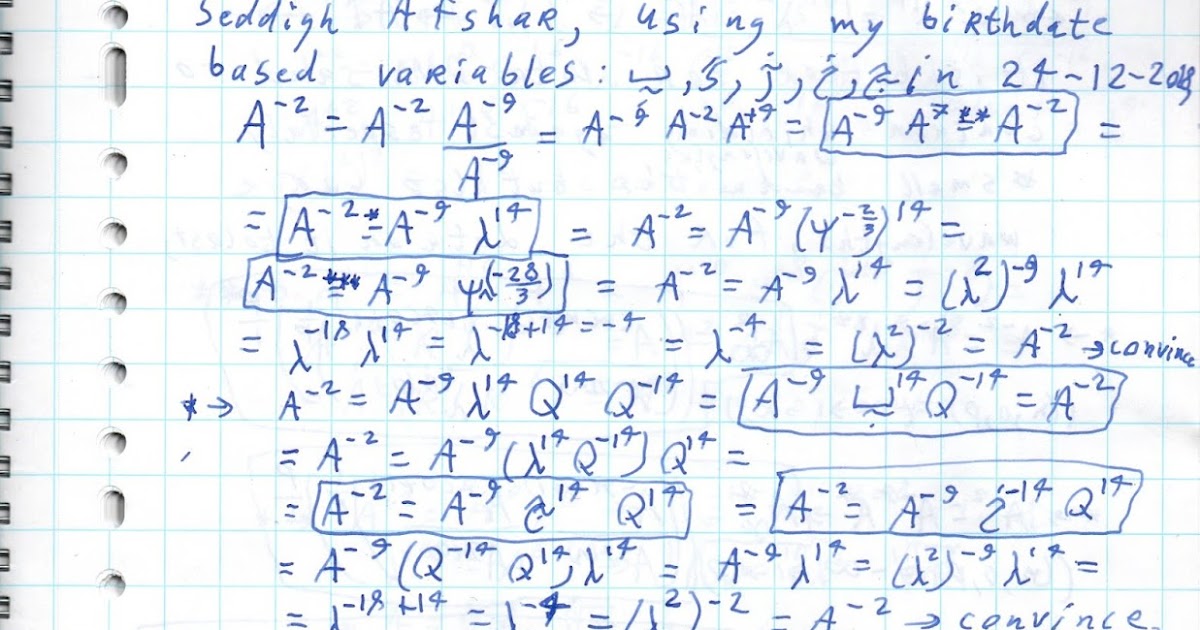 Seddigh Afshar, using my birthdate
based variables: , 5, j, i, in 24-12-2018
A^-2 = A^-2 A^-9/A^-9 = A^-9 A^-2 A^+9 = A^-9 A^7 =** A^-2 =
= A^-2 =* A^-9 λ^14 = A^-2 = A^-9 (ψ^-2/3)^14 =
A^-2 =*** A^-9 ψ^(-28/3) = A^-2 = A^-9 λ^14 = (λ^2)^-9 λ^14
= λ^-18 λ^14 = λ^-18+14=-4 = λ^-4 = (λ^2)^-2 = A^-2 → convince
* → A^-2 = A^-9 λ^14 Q^14 Q^-14 = A^-9 ^14 Q^-14 = A^-2
= A^-2 = A^-9 (λ^14 Q^-14) Q^14 =
= A^-2 = A^-9 ^14 Q^14 = A^-2 = A^-9 ^-14 Q^14
= A^-9 (Q^-14 Q^14) λ^14 = A^-9 λ^14 = (λ^2)^-9 λ^14 =
= λ^-18+14 = λ^-4 = (λ^2)^-2 = A^-2 → convince.